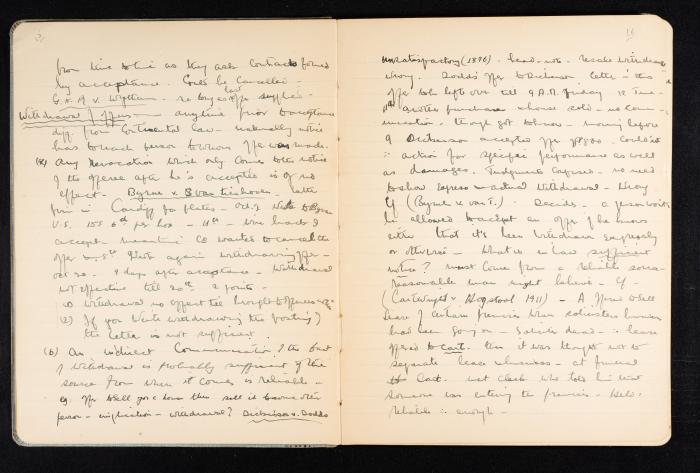 from time to time as they ask Contracts formed
by acceptance. Could be Cancelled -
G.N.R v. Witham. re buyers offer supplies -
Withdrawal of offers - anytime prior to acceptance
diff. from Continental law - naturally notice
has to reach person to whom offer was made.
(a) Any Revocation which only comes to the notice
of the offeree after he's accepted is of no
effect - Byrne v. Van Tienhoven - letter
from in Cardiff for plates - Oct. 1 Wrote to Byrne
U.S. 15s 6d per box - 11th - wire
accept meantime Co wanted to cancel the
offer 8th Wrote again withdrawing offer -
Oct 20 - 9 days after acceptance - Withdrawal
not effective till 20th - 2 points -
(1) Withdrawal no effect till brought to offerees
(2) If you write withdrawing the posting of
the letter is not sufficient.
(b) An indirect Communication of the fact
of Withdrawal is probably sufficient if the
source from when it comes is reliable -
eg. offer to sell you a house then sell it to some other
person - implication - withdrawal? Dickinson v. Dodds
16
unsatisfactory (1876). head-note - resale withdrawal
wrong. Dodds offer to Dickinson letter - this
offer to be left over till 9 A.M. Friday 12 June -
another purchaser - house sold - no comm-
unication - though got to know - morning before
9 Dickinson accepted offer £800. Couldn't
∴ action for specific performance as well
as damages. Judgment - no need
to show express - actual withdrawal - Wrong
Cf (Byrne v. van T.) Decides - a person won't
be allowed to accept an offer if he knows
either that it's been withdrawn expressly
or otherwise - What is in law sufficient
notice? must come from a reliable source
reasonable man might believe - Cf -
(Cartwright v Hoogstoel 1911) - A offered to sell
lease of certain premises where solicitors business
had been going on - Solicitor dead - ∴ lease
offered to Cart. then it was thought not to
separate lease & business - at funeral
Cart. met clerk who told him that
someone was entering the premises - Held:
reliable ∴ enough -